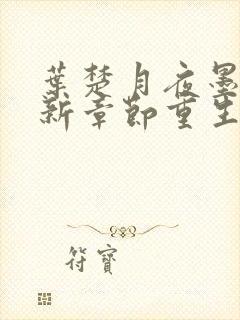 葉楚月夜墨
新章節重生
符寶